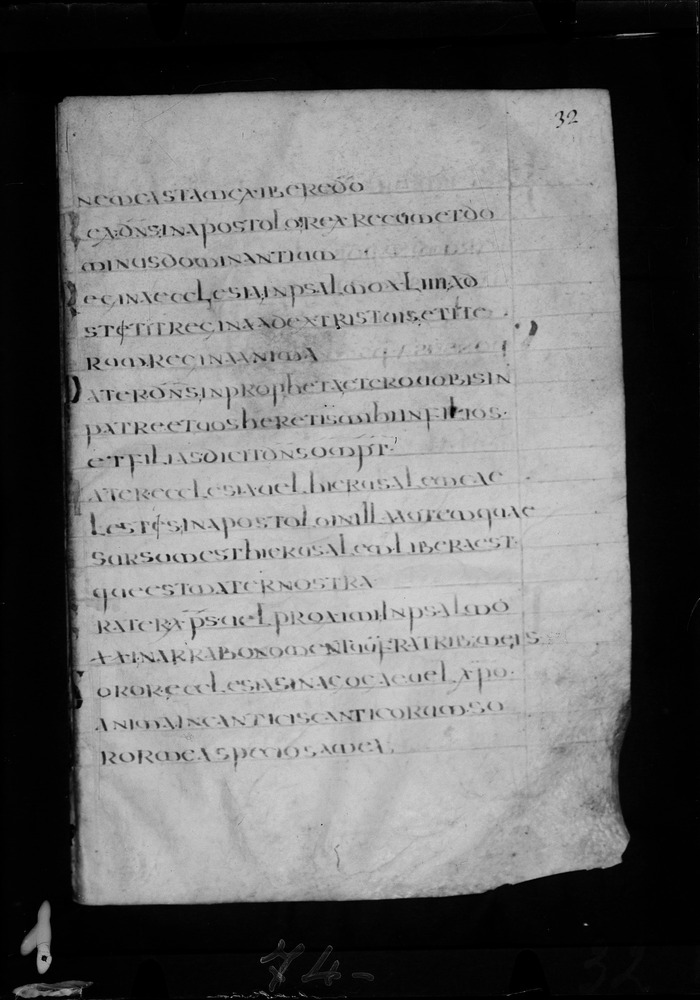 32
NEMEASTAMEXIBEREDŌ
EX·DN̄S·INAPOSTOLO·REXREGUMETDO
MINUSDOMINANTIUM
EGINAECCLESIA·INPSALMOXLIIII·AD
STETITREGINAADEXTRISTUIS,ETITE
RUMREGINAANIMA
ATERDN̄S,INPROPHETA,ETEROUOBISIN
PATREETUOSHERETISMIHIINFILIOS·
ETFILIASDICITDN̄SOMP̄R·
ATERECCLESIAUELHIERUSALEMCAE
LESTES,INAPOSTOLOMILLAAUTEMQUAE
SURSUMESTHIERUSALEMLIBERAEST·
QUAEESTMATERNOSTRA
RATERXP̄S·UELPROXIMI,INPSALMO
XXI·NARRABONOMENTUŪFRATRIBSMEIS
OROR,ECCLESIASINAGOGAEUELXP̄O·
ANIMAINCANTICISCANTICORUMSO
RORMEASPECIOSAMEA,
74-
32